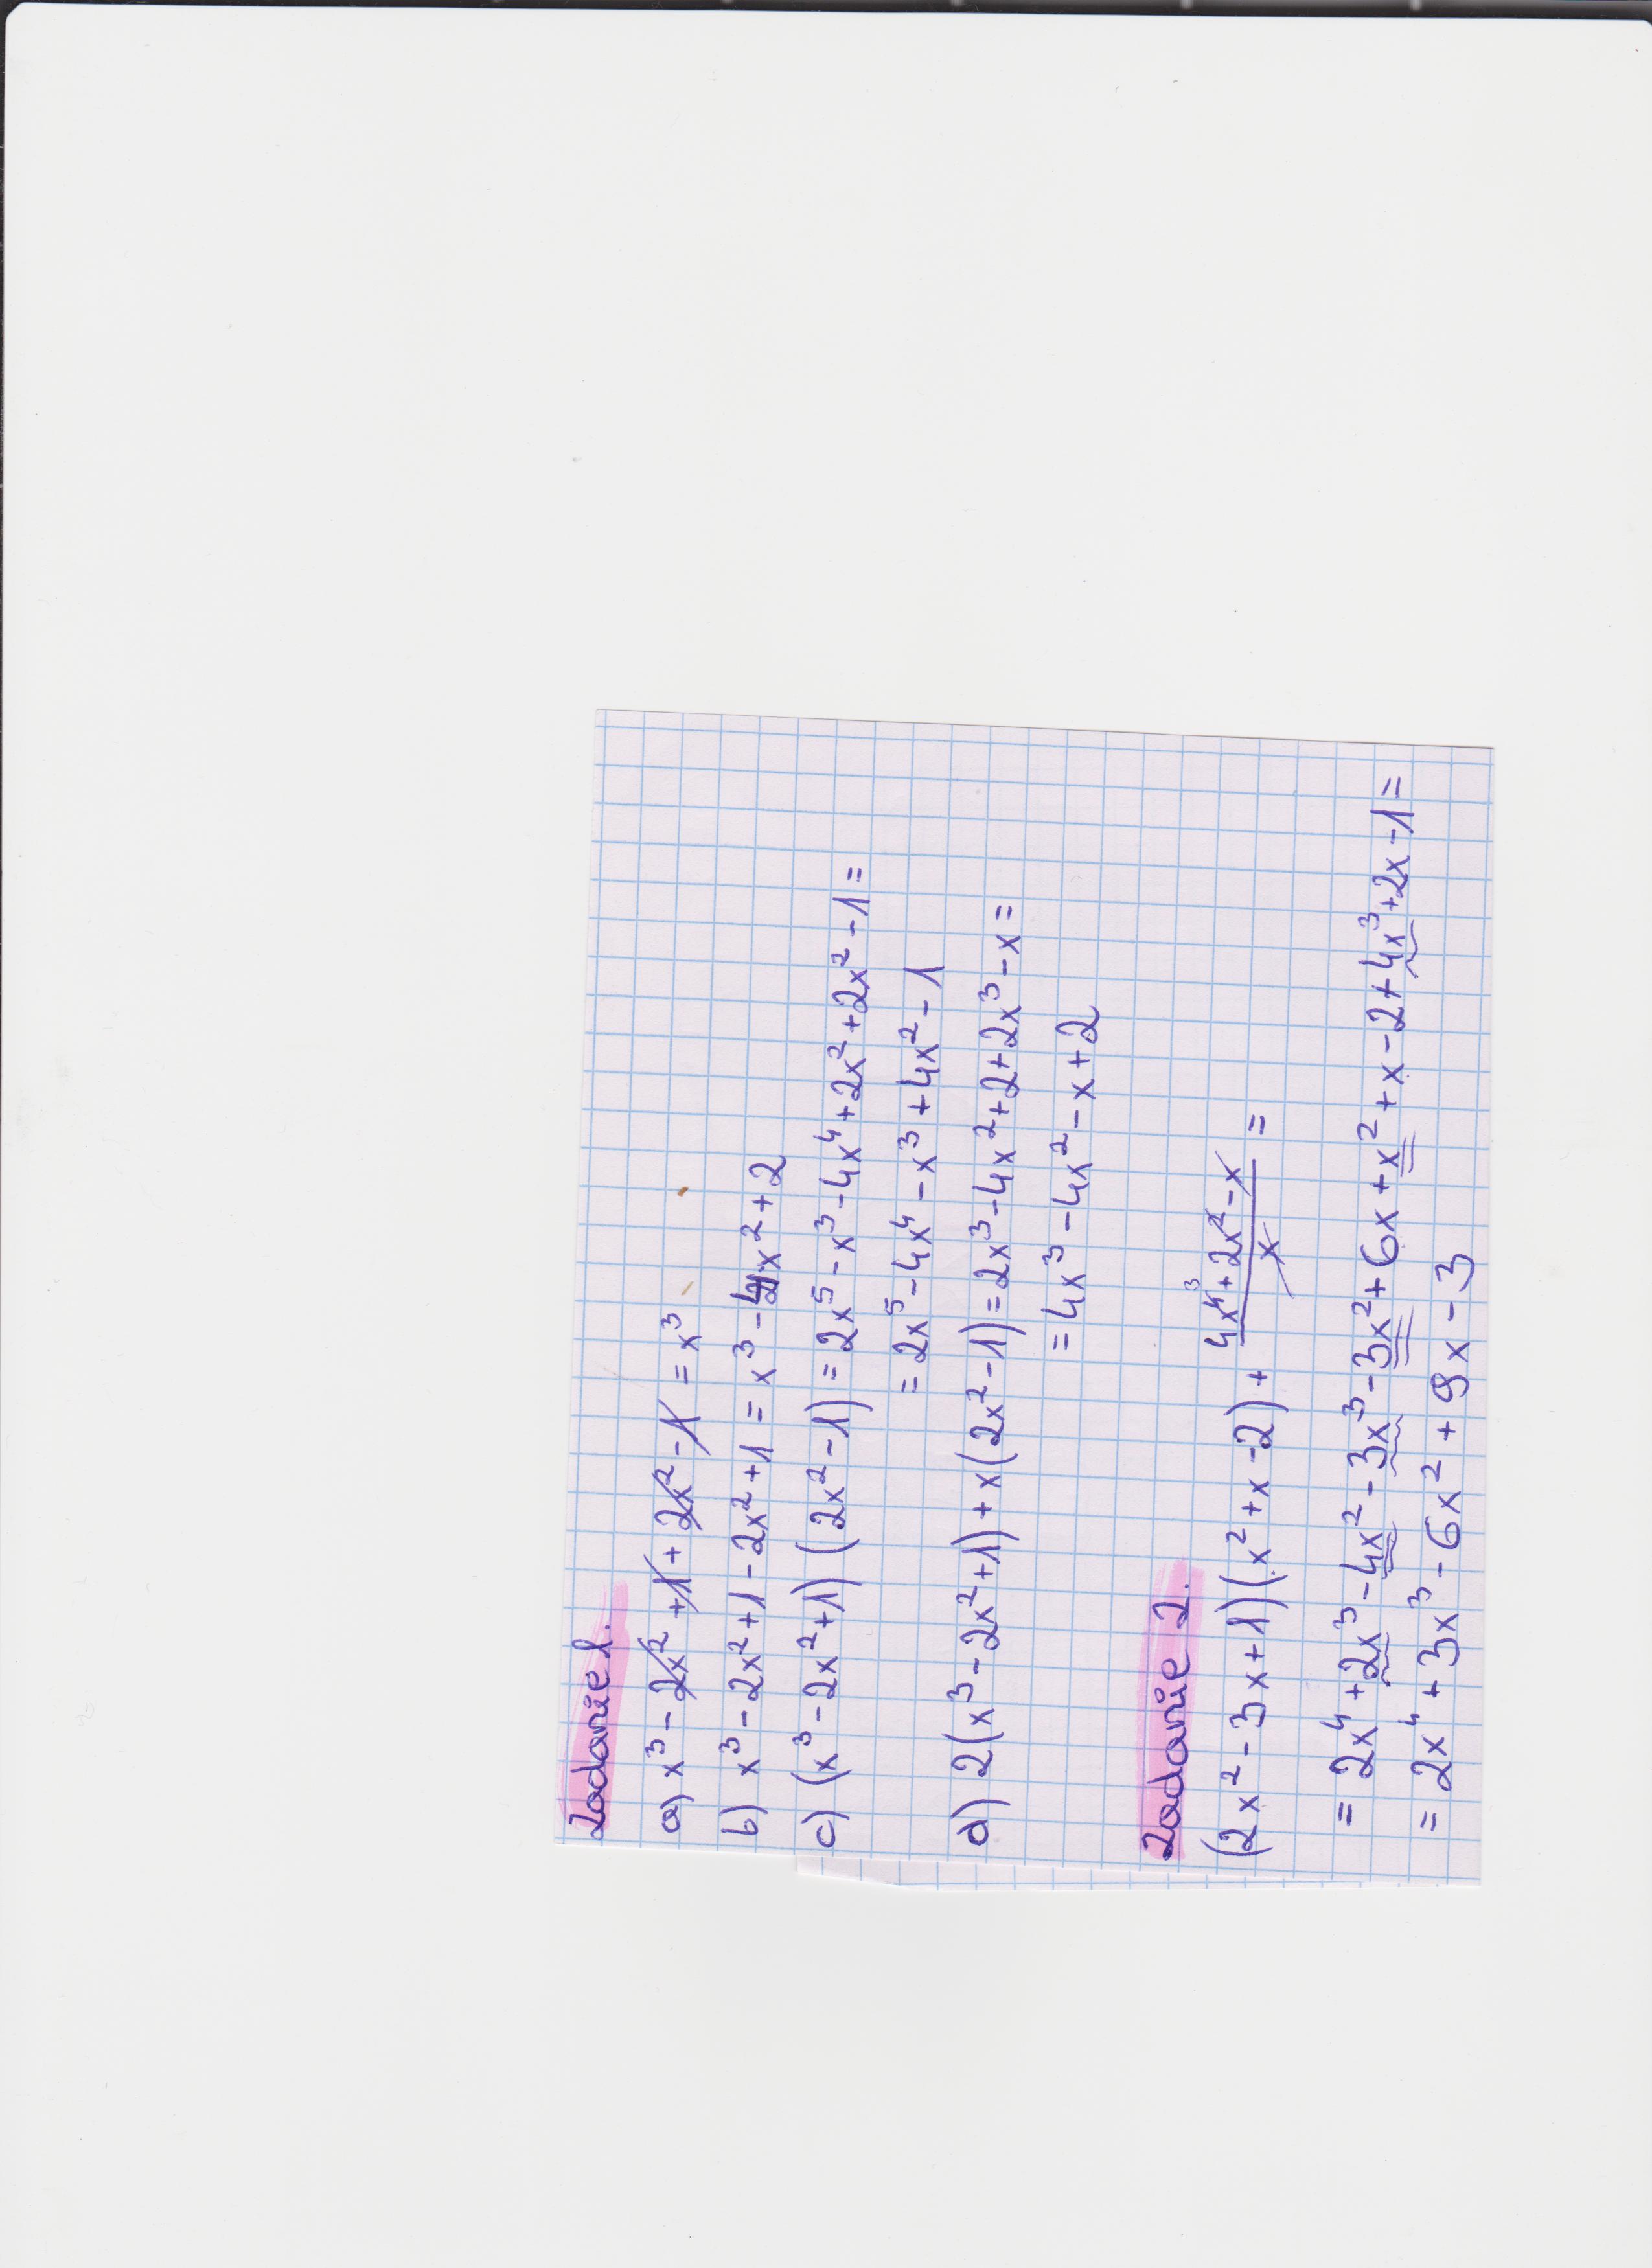 Zadanie 1.
a) x³ - 2x² + 1 + 2x² - 1 = x³
b) x³ - 2x² + 1 - 2x² + 1 = x³ - 4x² + 2
c) (x³ - 2x² + 1) (2x² - 1) = 2x⁵ - x³ - 4x⁴ + 2x² + 2x² - 1 =
= 2x⁵ - 4x⁴ - x³ + 4x² - 1
d) 2(x³ - 2x² + 1) + x(2x² - 1) = 2x³ - 4x² + 2 + 2x³ - x =
= 4x³ - 4x² - x + 2
Zadanie 2.
(2x² - 3x + 1)(x² + x - 2) + (4x⁴ + 2x² - x)/x =
= 2x⁴ + 2x³ - 4x² - 3x³ - 3x² + 6x + x² + x - 2 + 4x³ + 2x - 1 =
= 2x⁴ + 3x³ - 6x² + 9x - 3